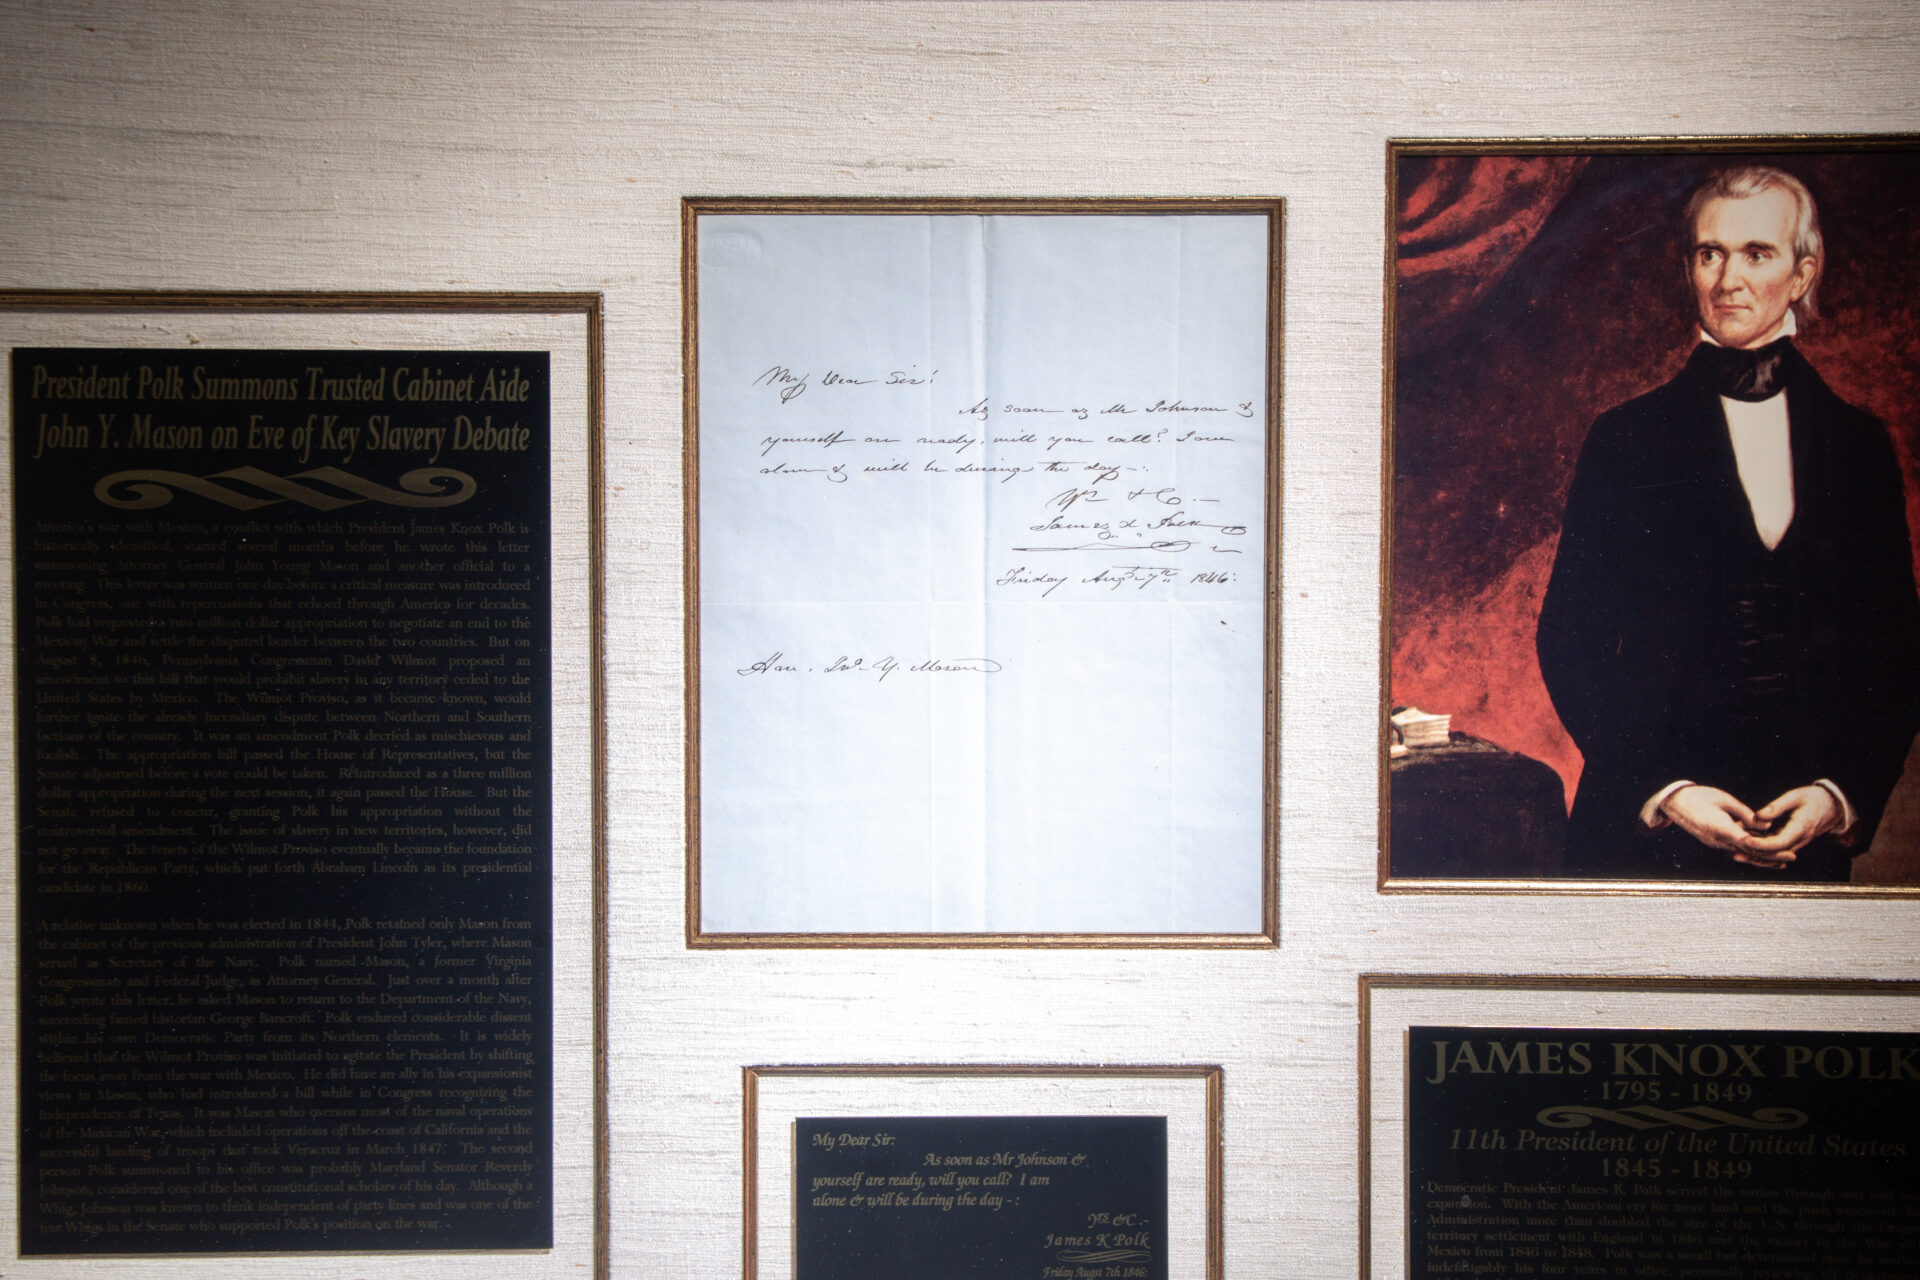 President Polk Summons Trusted Cabinet Aide
John Y. Mason on Eve of Key Slavery Debate
America's war with Mexico, a conflict with which President James Knox Polk is
historically identified, started several months before he wrote this letter
summoning Attorney General John Young Mason and another official to a
meeting. This letter was written one day before a critical measure was introduced
in Congress, one with repercussions that echoed through America for decades.
Polk had requested a two million dollar appropriation to negotiate an end to the
Mexican War and settle the disputed border between the two countries. But on
August 8, 1846, Pennsylvania Congressman David Wilmot proposed an
amendment to this bill that would prohibit slavery in any territory ceded to the
United States by Mexico. The Wilmot Proviso, as it became known, would
further ignite the already incendiary dispute between Northern and Southern
factions of the country. It was an amendment Polk decried as mischievous and
foolish. The appropriation bill passed the House of Representatives, but the
Senate adjourned before a vote could be taken. Reintroduced as a three million
dollar appropriation during the next session, it again passed the House. But the
Senate refused to concur, granting Polk his appropriation without the
controversial amendment. The issue of slavery in new territories, however, did
not go away. The tenets of the Wilmot Proviso eventually became the foundation
for the Republican Party, which put forth Abraham Lincoln as its presidential
candidate in 1860.
A relative unknown when he was elected in 1844, Polk retained only Mason from
the cabinet of the previous administration of President John Tyler, where Mason
served as Secretary of the Navy. Polk named Mason, a former Virginia
Congressman and Federal Judge, as Attorney General. Just over a month after
Polk wrote this letter, he asked Mason to return to the Department of the Navy,
succeeding famed historian George Bancroft. Polk endured considerable dissent
within his own Democratic Party from its Northern elements. It is widely
believed that the Wilmot Proviso was initiated to agitate the President by shifting
the focus away from the war with Mexico. He did have an ally in his expansionist
views in Mason, who had introduced a bill while in Congress recognizing the
independence of Texas. It was Mason who oversaw most of the naval operations
of the Mexican War, which included operations off the coast of California and the
successful landing of troops that took Veracruz in March 1847. The second
person Polk summoned to his office was probably Maryland Senator Reverdy
Johnson, considered one of the best constitutional scholars of his day. Although a
Whig, Johnson was known to think independent of party lines and was one of the
few Whigs in the Senate who supported Polk's position on the war.
My Dear Sir!
As soon as Mr Johnson &
yourself are ready, will you call? I am
alone & will be during the day -:
Yrs &C. -
James K Polk
Friday Augst 7th 1846:
Hon. Jno. Y. Mason
My Dear Sir:
As soon as Mr Johnson &
yourself are ready, will you call? I am
alone & will be during the day - :
Yrs. &C. -
James K Polk
Friday Augst 7th 1846:
JAMES KNOX POLK
1795 - 1849
11th President of the United States
1845 - 1849
Democratic President James K. Polk served the nation through war and
expansion. With the American cry for more land and the push westward,
Administration more than doubled the size of the U.S. through the Oregon
territory settlement with England in 1846 and the victory in the War
Mexico from 1846 to 1848. Polk was a small but determined man, he
indefatigably his four years in office, personally